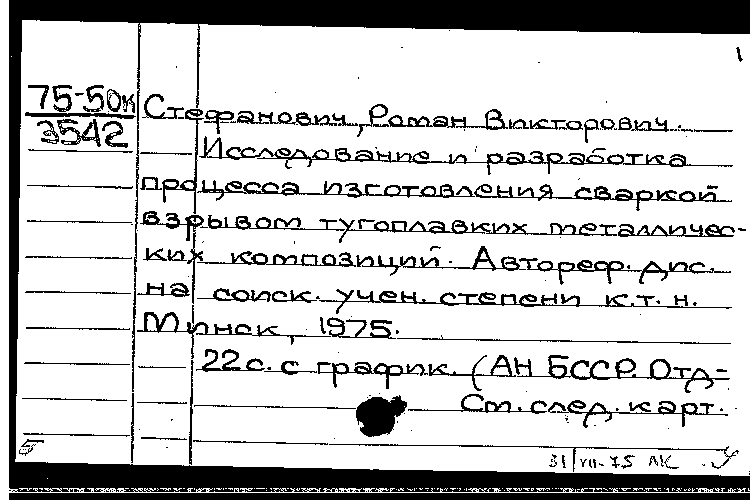 1
75-50к
3542
Стефанович, Роман Викторович.
Исследование и разработка
процесса изготовления сваркой
взрывом тугоплавких металличес-
ких композиций. Автореф. дис.
на соиск. учен. степени к.т.н.
Минск, 1975.
22 с. с график. (АН БССР. Отд-
См. след. карт.
Б
31/VII-75 ЛК